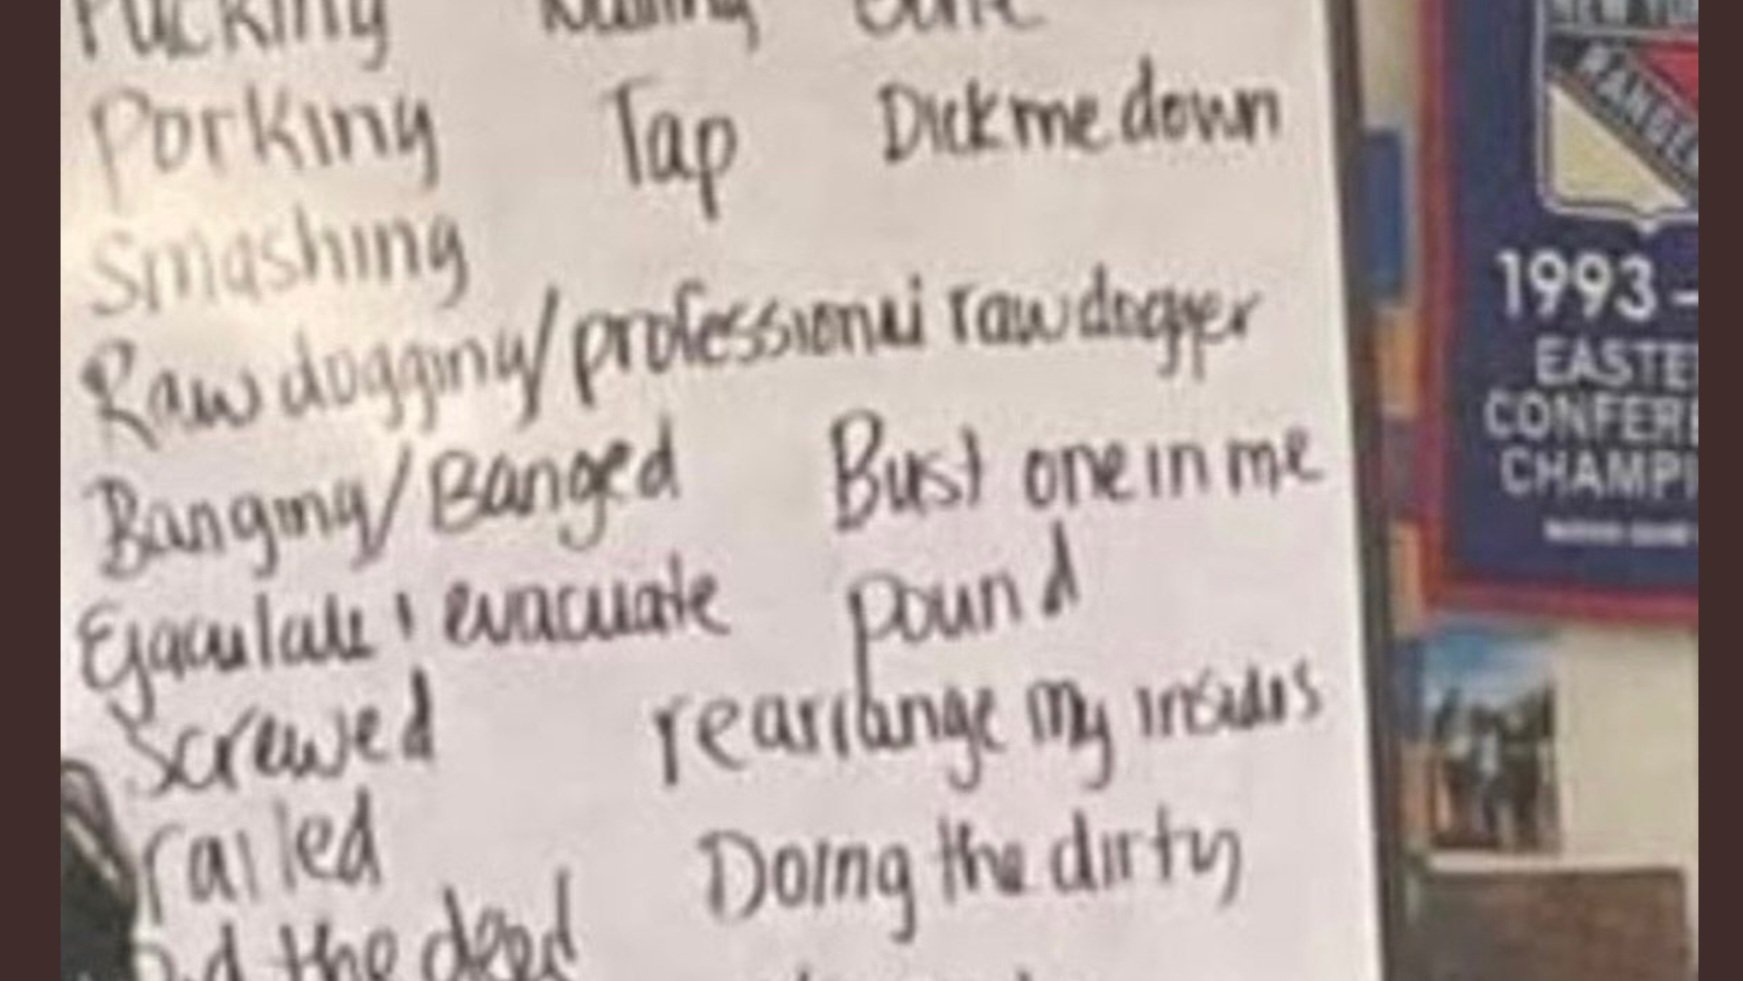 Fucking Nailing
Porking Tap Dick me down
Smashing
Raw dogging/professional raw dogger
Banging/Banged Bust one in me
Ejaculate / evacuate pound
Screwed rearrange my insides
railed Doing the dirty
the deed
NEW YORK
RANGERS
1993 -
EASTE
CONFER
CHAMPI